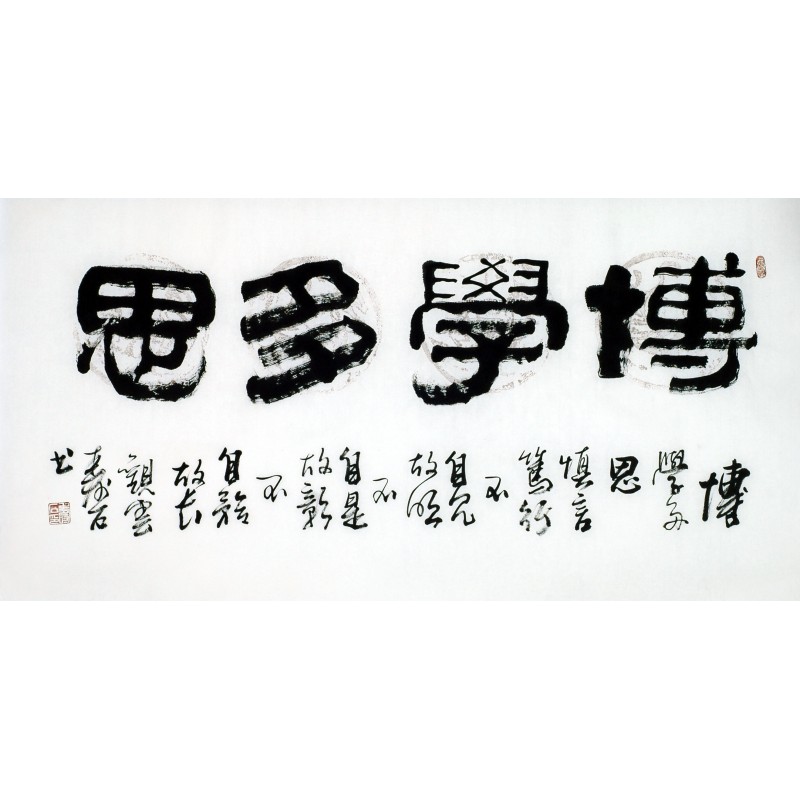 博學多思
博
學多
思
慎言
篤行
不
自見
故明
不
自是
故彰
不
自矜
故長
觀雲
壽石
書